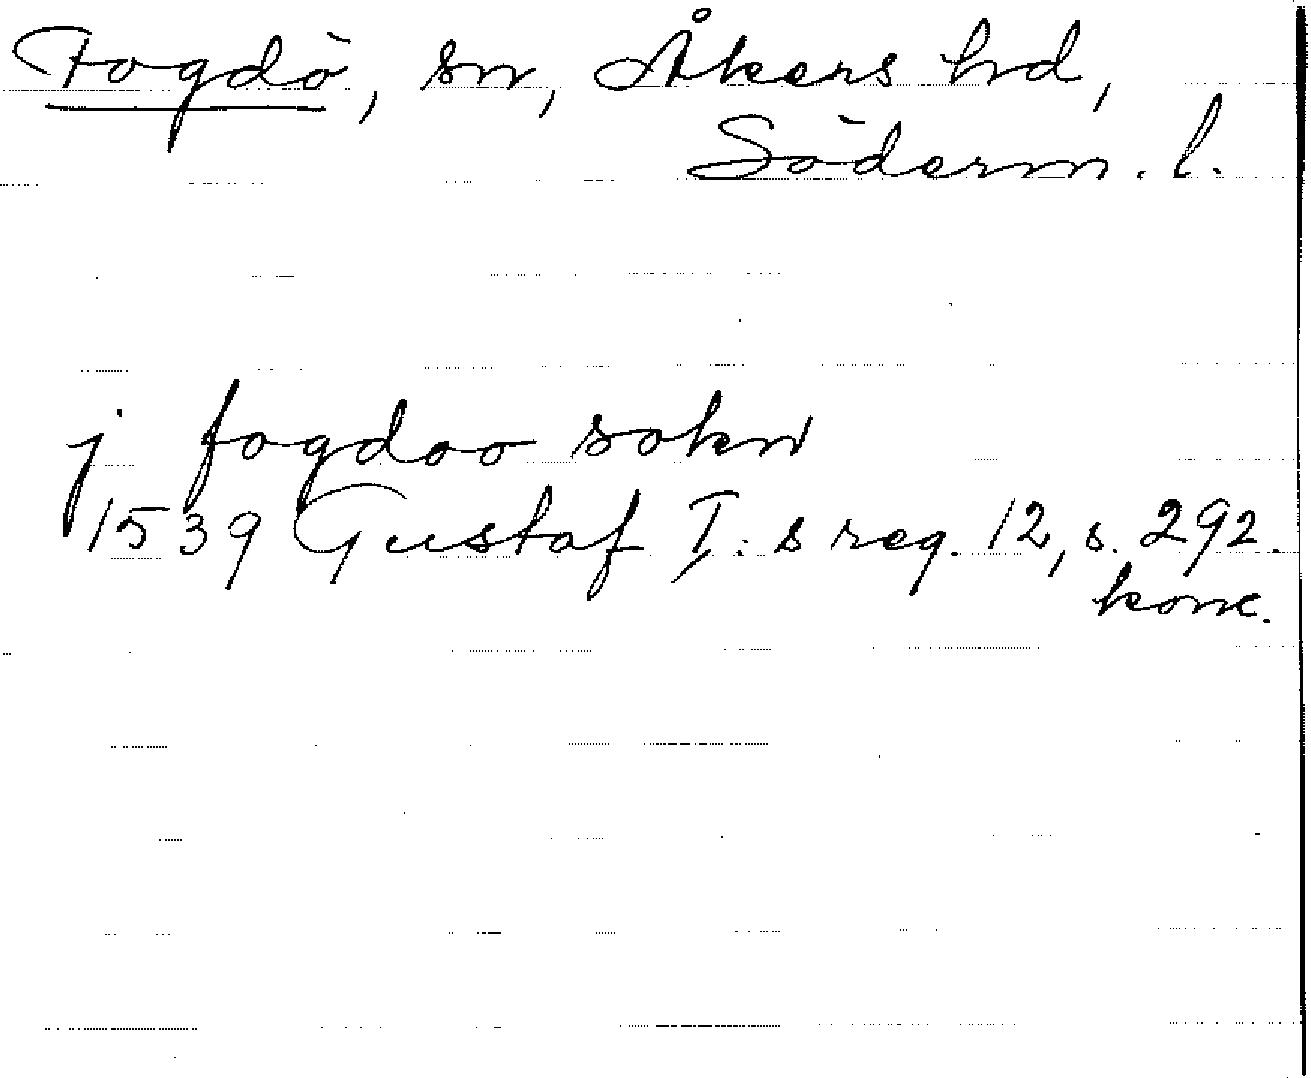 Fogdö, sn, Åkers hd,
Söderm. l.
j fogdoo sokn
1539 Gustaf I:s reg. 12, s. 292.
konc.